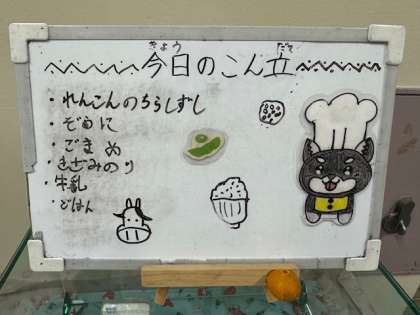 今日のこん立
きょう だて
・れんこんのちらしずし
・ぞうに
・ごまめ
・きざみのり
・牛乳
・ごはん